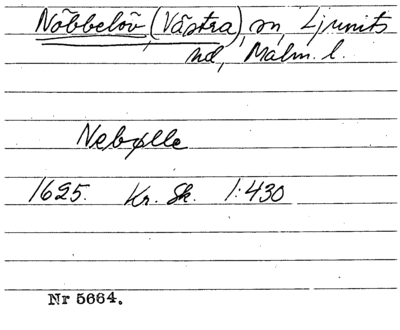 Nöbbelöv (Västra), sn, Ljunits
hd, Malm. l.
Nebølle
1625. Kr. Sk. 1:430
Nr 5664.